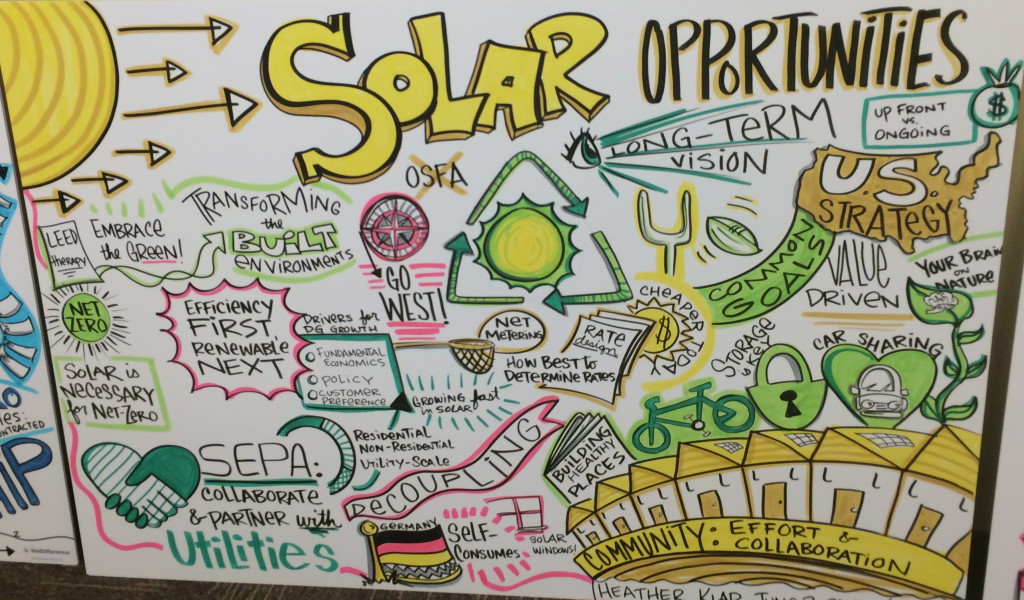 SOLAR
OPPORTUNITIES
UP FRONT
vs.
ONGOING
$
LONG-TERM
VISION
OSFA
U.S.
STRATEGY
TRANSFORMING
the
BUILT
ENVIRONMENTS
LEED
therapy
EMBRACE
the GREEN!
NET
ZERO
SOLAR is
NECESSARY
for NET-ZERO
EFFICIENCY
FIRST
RENEWABLE
NEXT
GO
WEST!
DRIVERS for
DG GROWTH
FUNDAMENTAL
ECONOMICS
POLICY
CUSTOMER
PREFERENCE
NET
METERING
HOW BEST to
DETERMINE RATES
RATE
design
GROWING fast
in SOLAR
CHEAPER
$
COMMON
GOALS
VALUE
DRIVEN
YOUR BRAIN
ON
NATURE
STORAGE
is KEY
CAR SHARING
SEPA:
COLLABORATE
& PARTNER with
UTILITIES
RESIDENTIAL
NON-RESIDENTIAL
UTILITY-SCALE
DECOUPLING
GERMANY
SELF-
CONSUMES
SOLAR
WINDOWS!
BUILDING
HEALTHY
PLACES
COMMUNITY: EFFORT &
COLLABORATION